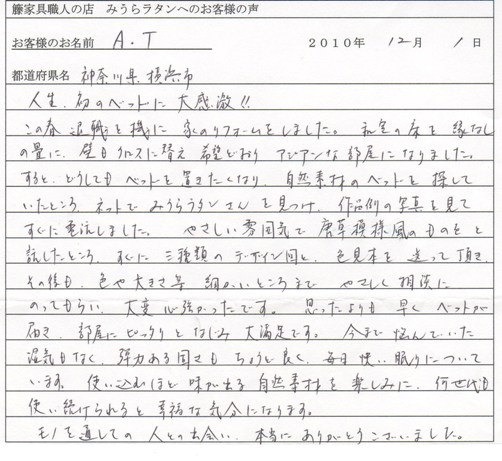 籐家具職人の店 みうらラタンへのお客様の声
お客様のお名前 A.T 2010年 12月 1日
都道府県名 神奈川県横浜市
人生、初のベットに 大感激!!
この春 退職を機に 家のリフォームをしました。 和室の床を 縁なし
の畳に、壁もクロスに替え 希望どおり アジアンな部屋になりました。
すると、どうしても ベットを置きたくなり、自然素材のベットを 探して
いたところ、ネットで みうらラタンさんを見つけ、作品例の写真を見て
すぐに電話しました。 やさしい雰囲気で 唐草模様風のものをと
話したところ、すぐに 三種類のデザイン図と、色見本を 送って頂き
その後も、色や大きさ等 細かいところまで やさしく 相談に
のってもらい、大変 心強かったです。 思ったよりも 早く ベットが
届き、部屋にピッタリと なじみ 大満足です。 今まで 悩んでいた
湿気もなく、弾力ある固さも ちょうど良く、毎日 快い眠りについて
います。 使い込むほど 味が出る 自然素材を 楽しみに、何世代も
使い続けられると 幸福な気分になります。
モノを通しての 人との出会い、本当に ありがとうございました。